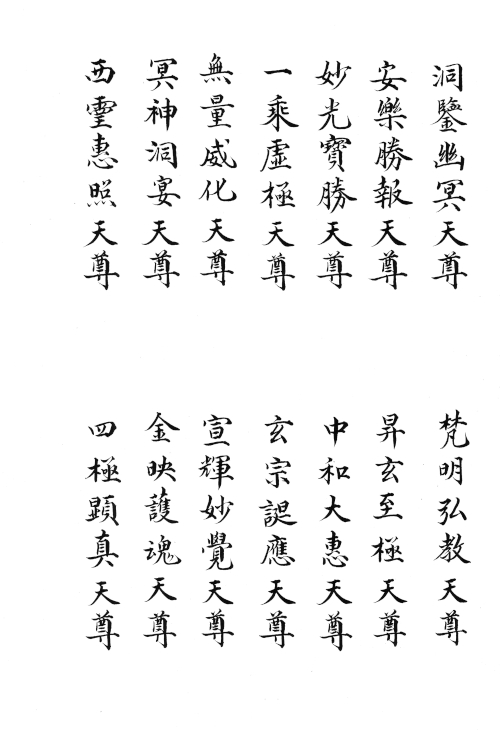 洞鑒幽冥天尊
安樂勝報天尊
妙光寶勝天尊
一乘虛極天尊
無量威化天尊
冥神洞宴天尊
西靈惠照天尊
梵明弘教天尊
昇玄至極天尊
中和大惠天尊
玄宗誕應天尊
宣輝妙覺天尊
金映護魂天尊
四極顯真天尊